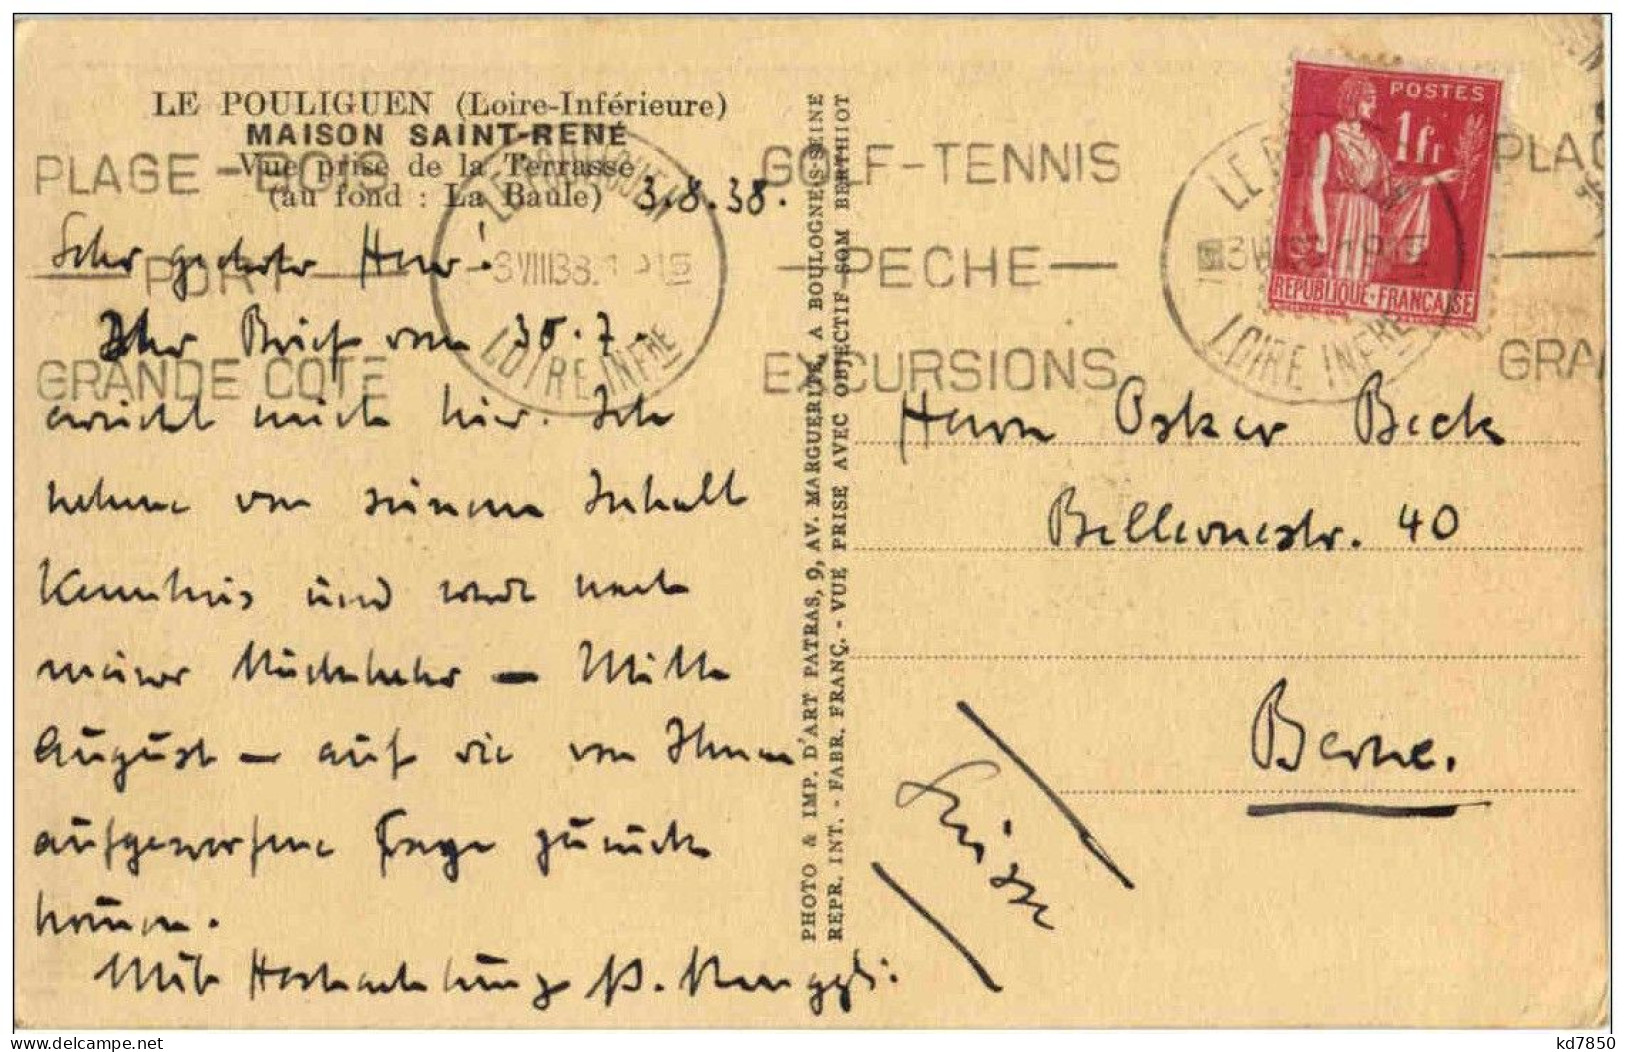 LE POULIGUEN (Loire-Inférieure)
MAISON SAINT-RENÉ
Vue prise de la Terrasse
(au fond : La Baule)
3.8.38.
PLAGE - BOIS
PORT
GRANDE COTE
LOIRE INFRE
GOLF-TENNIS
PECHE
EXCURSIONS
LOIRE INFRE
PLAG
GRAN
POSTES
1fr
REPUBLIQUE·FRANCAISE
Sehr geehrter Herr!
Ihr Brief vom 30.7.
erreicht mich hier. Ich
nehme von seinem Inhalt
Kenntnis und werde nach
meiner Rückkehr – Mitte
August – auf die von Ihnen
aufgeworfene Frage zurück
kommen.
Mit Hochachtung
PHOTO & IMP. D'ART PATRAS, 9, AV. MARGUERITE, A BOULOGNE-S-SEINE
REPR. INT. - FABR. FRANÇ. - VUE PRISE AVEC OBJECTIF SOM BERTHIOT
Herrn Oskar Beck
40
Berne.
Suisse
Delcampe.net
kd7850